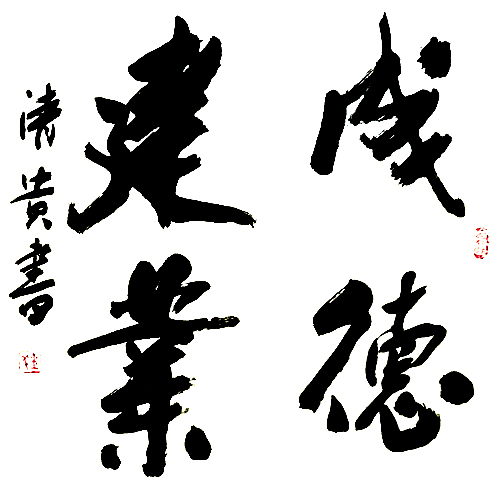 成德
建業
清貴書